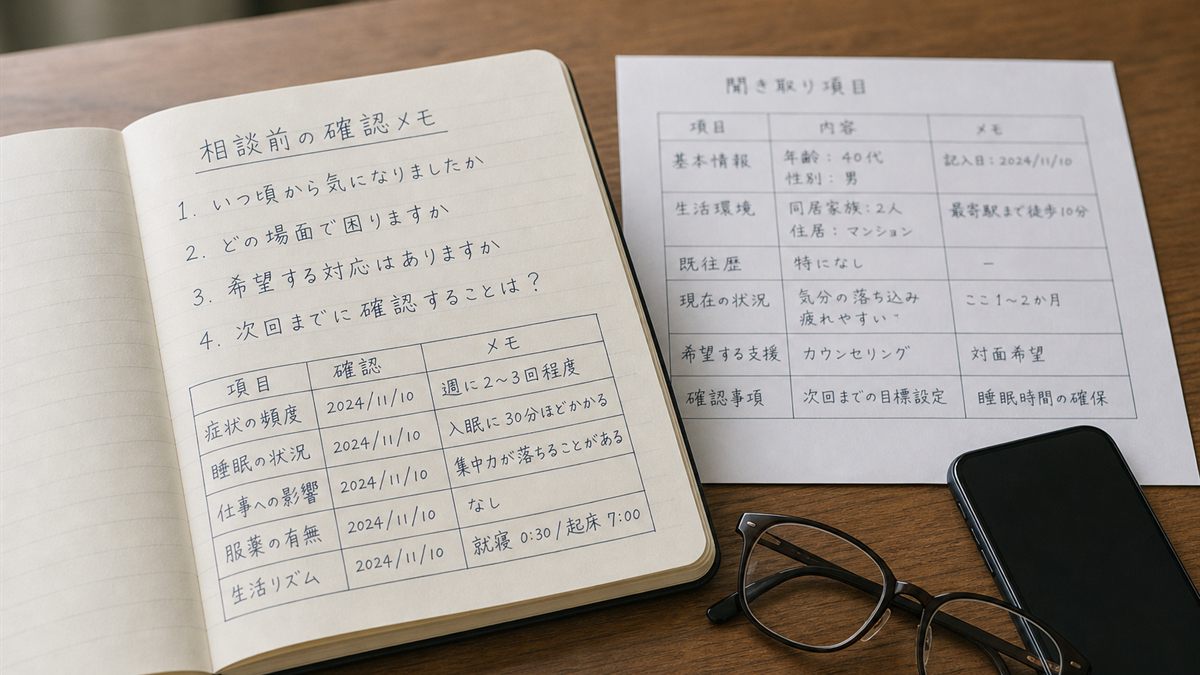 相談前の確認メモ
1. いつ頃から気になりましたか
2. どの場面で困りますか
3. 希望する対応はありますか
4. 次回までに確認することは？
項目 確認 メモ
症状の頻度 2024/11/10 週に2〜3回程度
睡眠の状況 2024/11/10 入眠に30分ほどかかる
仕事への影響 2024/11/10 集中力が落ちることがある
服薬の有無 2024/11/10 なし
生活リズム 2024/11/10 就寝 0:30 / 起床 7:00
聞き取り項目
項目 内容 メモ
基本情報 年齢：40代 記入日：2024/11/10
性別：男
生活環境 同居家族：2人 最寄駅まで徒歩10分
住居：マンション
既往歴 特になし ー
現在の状況 気分の落ち込み ここ1〜2か月
疲れやすい
希望する支援 カウンセリング 対面希望
確認事項 次回までの目標設定 睡眠時間の確保